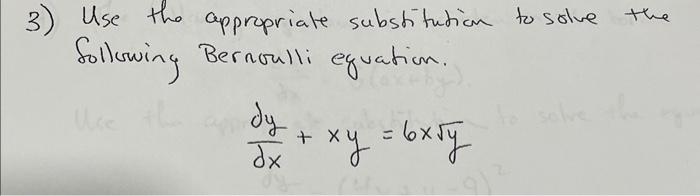 3) Use the appropriate substitution to solve the
following Bernoulli equation.
dy/dx + xy = 6x√y